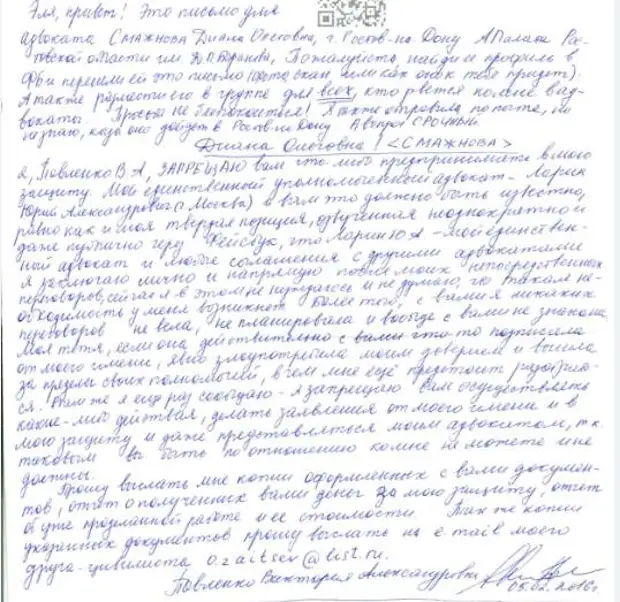 Эля, привет! Это письмо для
адвоката Смажнова Диана Олеговна, г. Ростов-на-Дону АПалата Рос-
товской области им. Д.П. Баранова, Пожалуйста, найди её профиль в
ФБ и перешли ей это письмо (фото скан или как оно к тебе придёт).
А также размести его в группе для всех, кто рвется ко мне в ад-
вокаты. Просьба не беспокоиться! Я также отправила по почте, но
не знаю, когда оно дойдёт в Ростов-на-Дону А вопрос СРОЧНЫЙ.
Диана Олеговна! <СМАЖНОВА>
Я, Павленко В А, ЗАПРЕЩАЮ вам что-либо предпринимать в мою
защиту. Мой единственный уполномоченный адвокат - Ларин
Юрий Александрович (г. Москва) и вам это должно быть известно,
равно как и моя твердая позиция, озвученная неоднократно и
даже публично через Фейсбук, что Ларин ЮА - мой единствен-
ный адвокат и любые соглашения с другими адвокатами
я заключаю лично и напрямую после моих непосредственных
переговоров, сейчас я в этом не нуждаюсь и не думаю, что такая не-
обходимость у меня возникнет. Более того, с вами я никаких
переговоров не вела, не планировала и вообще с вами не знакома.
Моя тётя, если она действительно с вами что-то подписала
от моего имени, явно злоупотребила моим доверием и вышла
за пределы своих полномочий, в чем мне ещё предстоит
ся. Вам же я ещё раз сообщаю - я запрещаю Вам осуществлять
какие-либо действия, делать заявления от моего имени и в
мою защиту и даже представляться моим адвокатом, т.к.
таковым вы быть по отношению ко мне не можете и не
должны.
Прошу выслать мне копии оформленных с вами докумен-
тов, отчёт о полученных вами денег за мою защиту, отчет
об уже проделанной работе и ее стоимости. Также копии
указанных документов прошу выслать на e-mail моего
друга-цивилиста o.zaitsev@list.ru.
Павленко Виктория Александровна
05.02.2016г